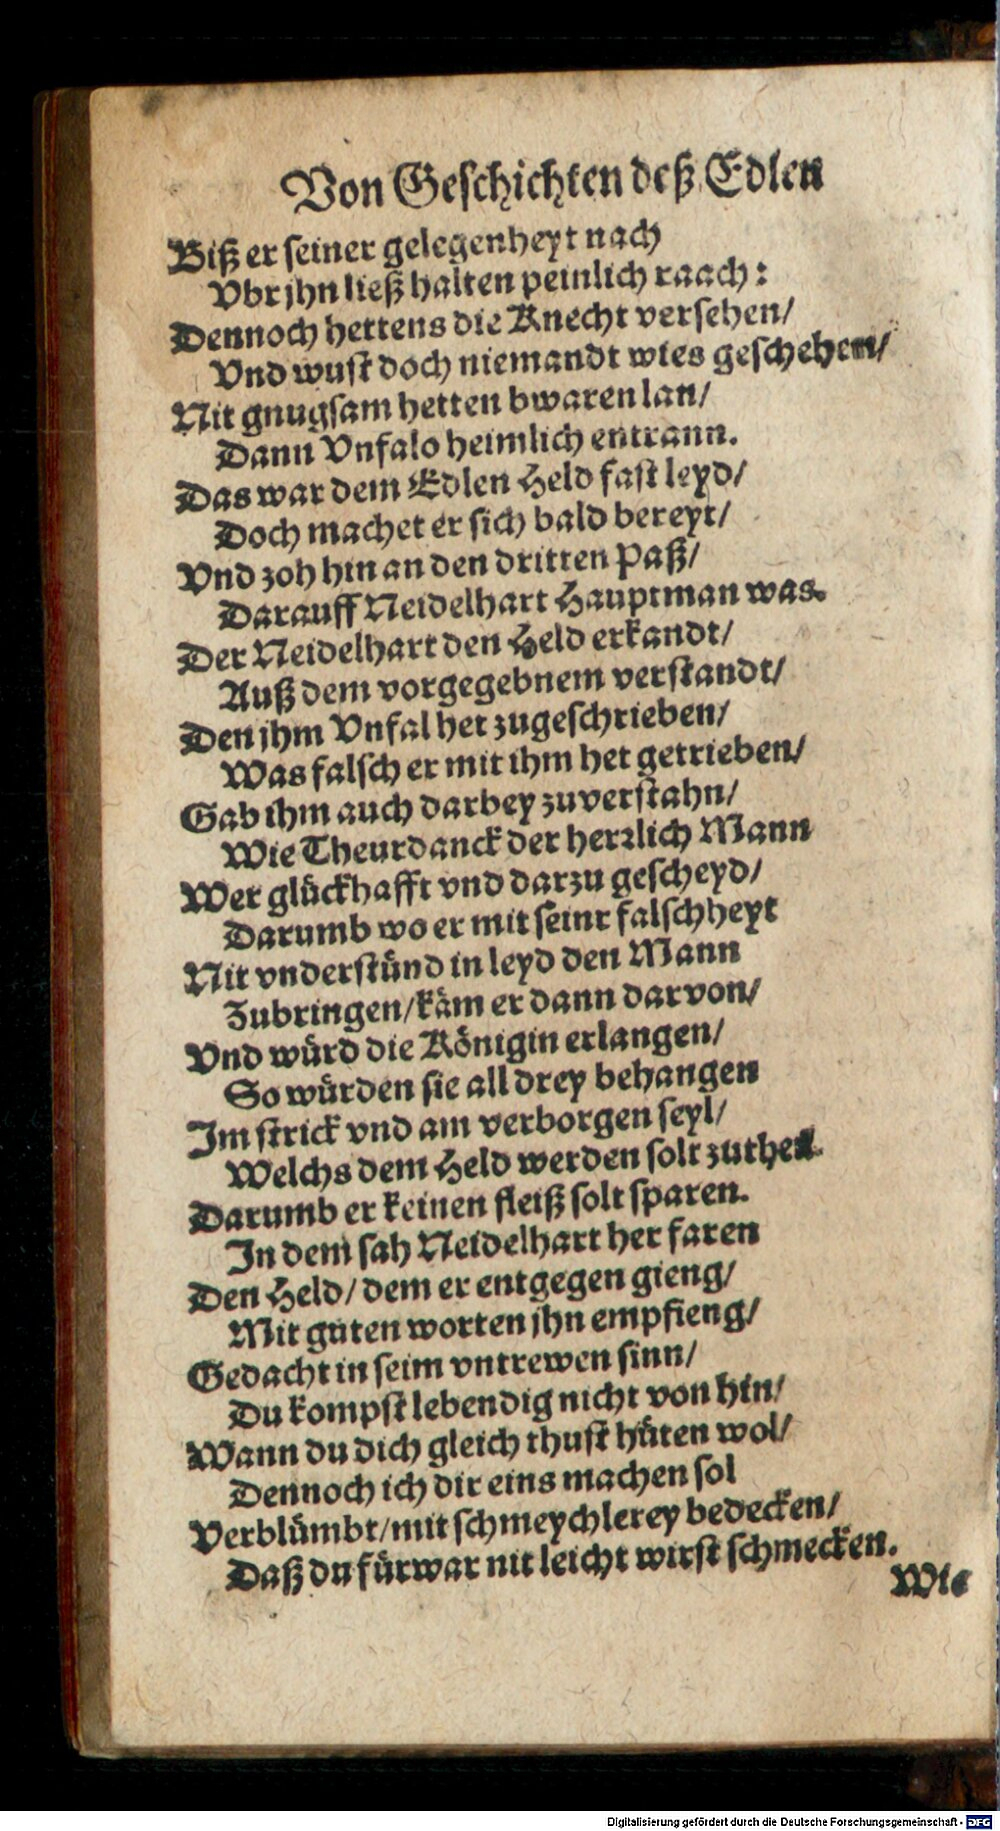 Von Geschichten deß Edlen
Biß er seiner gelegenheyt nach
Vbr jhn ließ halten peinlich raach:
Dennoch hettens die Knecht versehen/
Vnd wust doch niemandt wies geschehen/
Nit gnugsam hetten bwaren lan/
Dann Vnfalo heimlich entrann.
Das war dem Edlen Held fast leyd/
Doch machet er sich bald bereyt/
Vnd zoh hin an den dritten Paß/
Darauff Neidelhart Hauptman was.
Der Neidelhart den Held erkandt/
Auß dem vorgegebnem verstandt/
Den jhm Vnfal het zugeschrieben/
Was falsch er mit ihm het getrieben/
Gab ihm auch darbey zuverstahn/
Wie Theurdanck der herrlich Mann
Wer glückhafft vnd darzu gescheyd/
Darumb wo er mit seinr falschheyt
Nit vnderstünd in leyd den Mann
Zubringen/käm er dann darvon/
Vnd würd die Königin erlangen/
So würden sie all drey behangen
Im strick vnd am verborgen seyl/
Welchs dem Held werden solt zutheil.
Darumb er keinen fleiß solt sparen.
In dem sah Neidelhart her faren
Den Held/dem er entgegen gieng/
Mit guten worten jhn empfieng/
Gedacht in seim vntrewen sinn/
Du kompst lebendig nicht von hin/
Wann du dich gleich thust hüten wol/
Dennoch ich dir eins machen sol
Verblümbt/mit schmeychlerey bedecken/
Daß du fürwar nit leicht wirst schmecken.
Wie
Digitalisierung gefördert durch die Deutsche Forschungsgemeinschaft - DFG